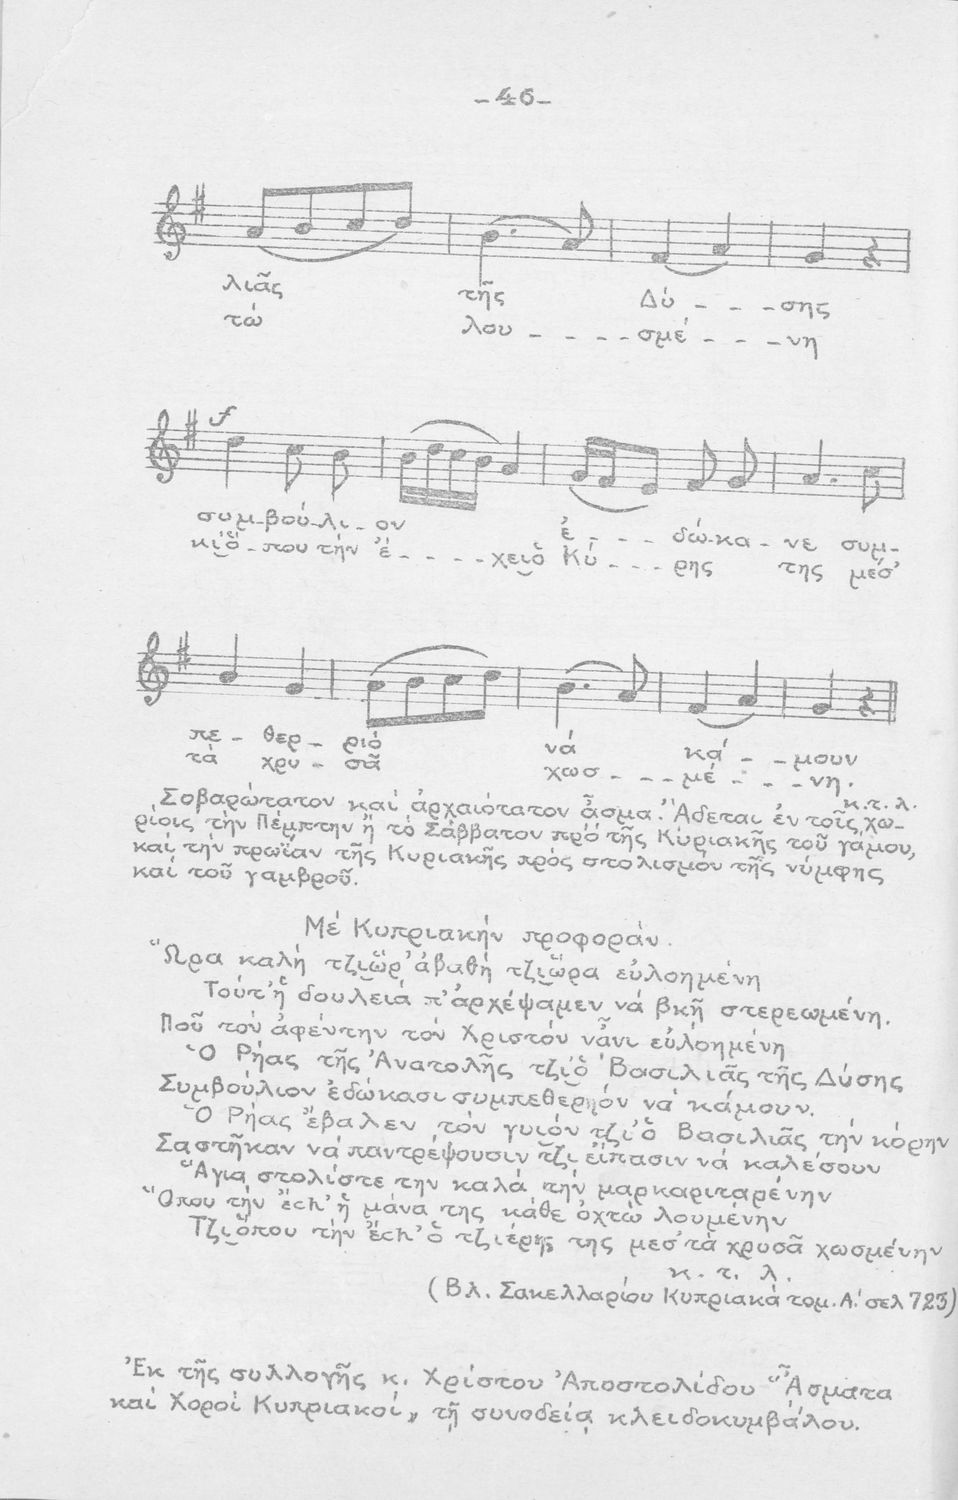 -46-
λιᾶς τῆς Δύ - - - σης
τώ λου - - - - σμέ - - - νη
f
συμ-βού-λι-ον ἐ - - - δώ-κα-νε συμ-
κι͜ὅ-που τήν ἔ - - - - χει͜ὁ Κύ - - - ρης της μέσ'
πε - θερ - ριό νά κά - - μουν
τά χρυ - σᾶ χωσ - - - μέ - - - νη.
κ.τ.λ.
Σοβαρώτατον καί ἀρχαιότατον ἆσμα. Ἄδεται ἐν τοῖς χω-
ρίοις τήν Πέμπτην ἤ τό Σάββατον πρό τῆς Κυριακῆς τοῦ γάμου,
καί τήν πρωΐαν τῆς Κυριακῆς πρός στολισμόν τῆς νύμφης
καί τοῦ γαμβροῦ.
Μέ Κυπριακήν προφοράν.
Ὥρα καλή τζι͜ὥρ' ἀβαθή τζι͜ὥρα εὐλοημένη
Τούτ' ἡ δουλειά π' ἀρχέψαμεν νά βκῇ στερεωμένη.
Ποῦ τόν ἀφέντην τόν Χριστόν νἆνι εὐλοημένη
Ὁ Ρήας τῆς Ἀνατολῆς τζι͜ὁ Βασιλιᾶς τῆς Δύσης
Συμβούλιον ἐδώκασι συμπεθερηόν νά κάμουν.
Ὁ Ρήας ἔβαλεν τόν γυιόν τζι' ὁ Βασιλιᾶς τήν κόρην
Σαστῆκαν νά παντρέψουσιν τζι εἴπασιν νά καλέσουν
Ἄγια στολίστε την καλά τήν μαρκαριταρένην
Ὅπου τήν ἔch' ἡ μάνα της κάθε ὀχτώ λουμένην
Τζι͜ὅπου τήν ἔch' ὁ τζιέρης της μεσ' τά χρυσᾶ χωσμένην
κ. τ. λ.
(Βλ. Σακελλαρίου Κυπριακά τομ. Α.' σελ 723)
Ἐκ τῆς συλλογῆς κ. Χρίστου Ἀποστολίδου "ᾌσματα
καί Χοροί Κυπριακοί" τῇ συνοδείᾳ κλειδοκυμβάλου.